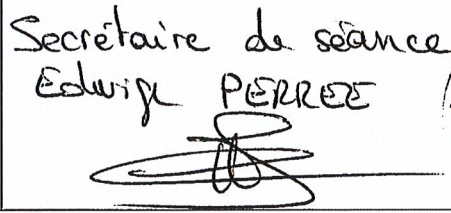 Secrétaire de séance
Edwige PERREE